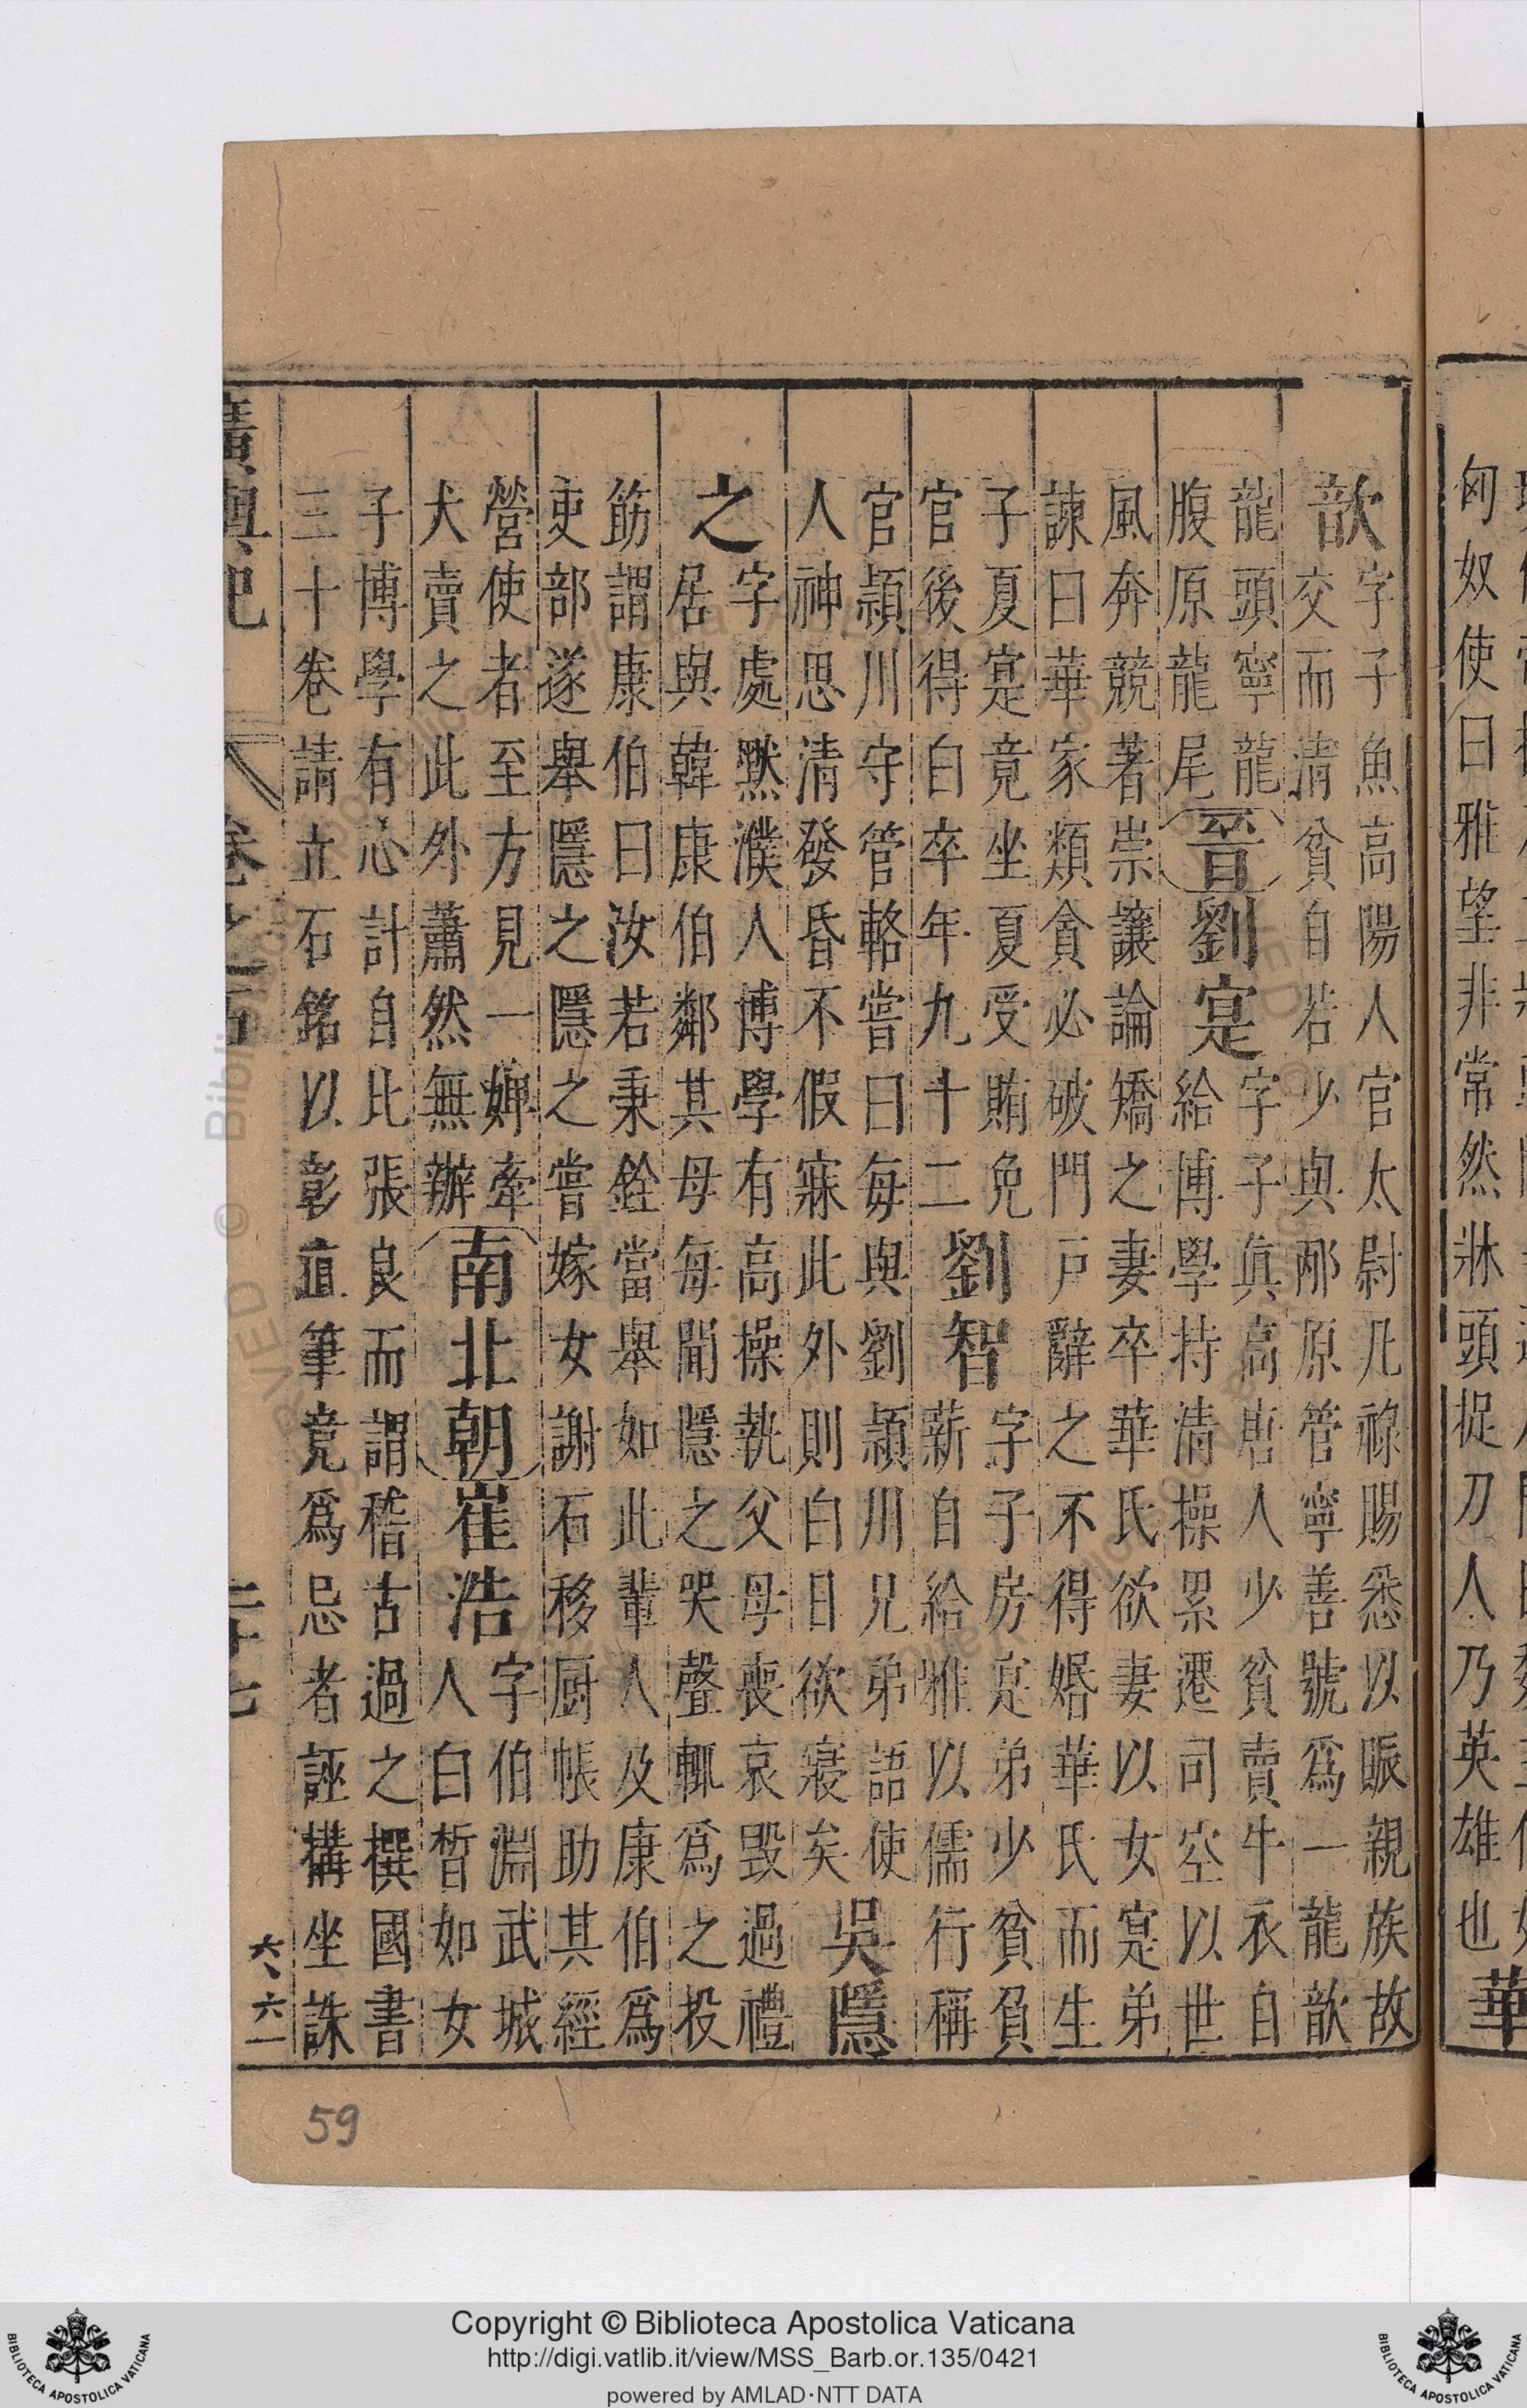 匈奴使曰雅望非常然牀頭捉刀人乃英雄也華
歆
字子魚高陽人官太尉凡祿賜悉以賑親族故
交而清貧自若少與邴原管寧善號爲一龍歆
龍頭寧龍
腹原龍尾
晉劉寔
字子眞高唐人少貧賣牛衣自
給博學持清操累遷司空以世
風奔競著崇讓論矯之妻卒華氏欲妻以女寔弟
諫曰華家類貪必破門戶辭之不得婚華氏而生
子夏寔竟坐夏受賄免
官後得白卒年九十二
劉智
字子房寔弟少貧負
薪自給雅以儒行稱
官潁川守管輅嘗曰每與劉潁川兄弟語使
人神思清發昏不假寐此外則白日欲寢矣
吳隱
之
字處黙濮人博學有高操執父母喪哀毀過禮
居與韓康伯鄰其母每聞隱之哭聲輒爲之投
筯謂康伯曰汝若秉銓當舉如此輩人及康伯爲
吏部遂舉隱之隱之嘗嫁女謝石移厨帳助其經
營使者至方見一婢牽
犬賣之此外蕭然無辦
南北朝崔浩
字伯淵武城
人白晳如女
子博學有心計自比張良而謂稽古過之撰國書
三十卷請立石銘以彰直筆竟爲忌者誣搆坐誅
廣輿記
卷之五
二十七
六六一
59
PRESERVED © Biblioteca Apostolica Vaticana
Copyright © Biblioteca Apostolica Vaticana
http://digi.vatlib.it/view/MSS_Barb.or.135/0421
powered by AMLAD·NTT DATA
BIBLIOTECA APOSTOLICA VATICANA
BIBLIOTECA APOSTOLICA VATICANA